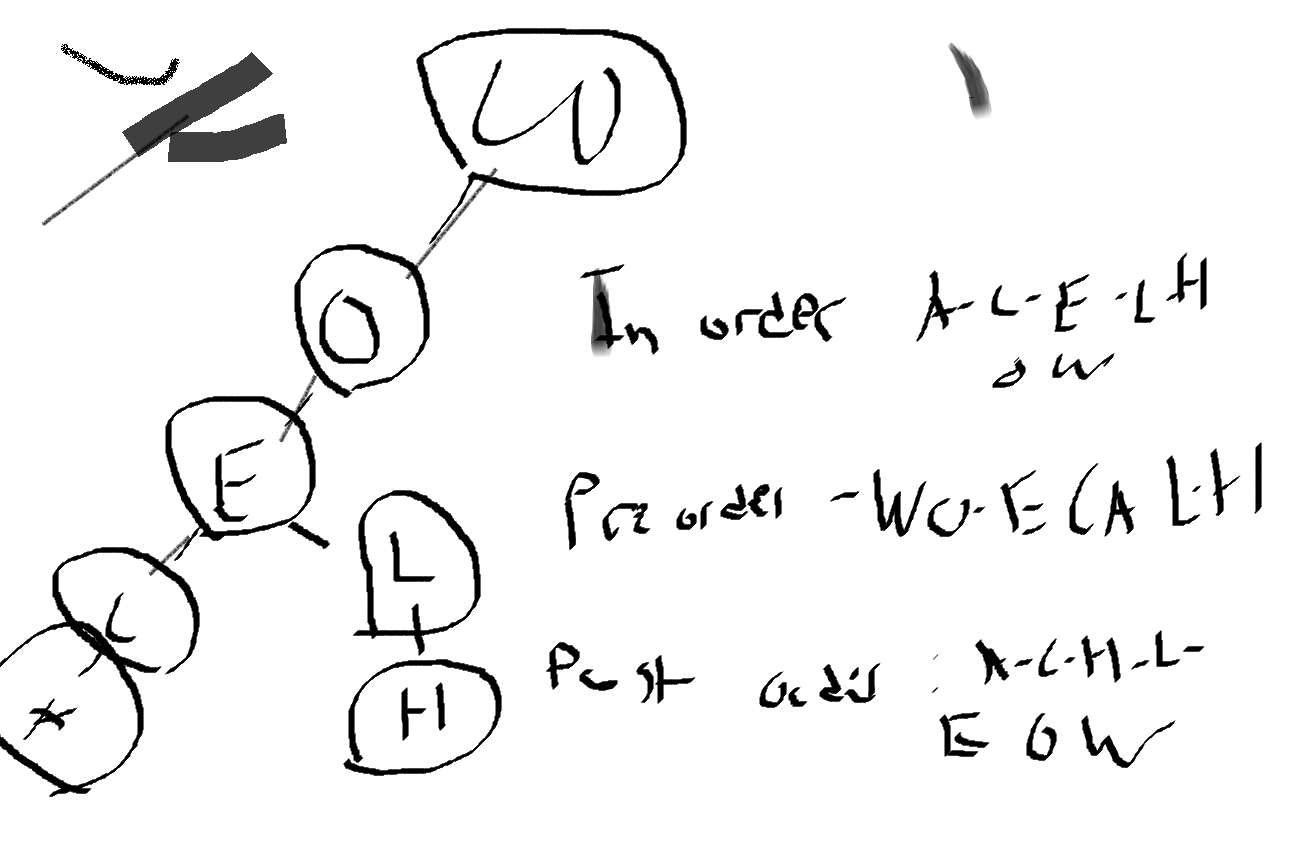 W
O
In order A-C-E-LH
O W
E
Preorder -WO-ECALH
L
C
Post order : A-C-H-L-
E O W
H
A